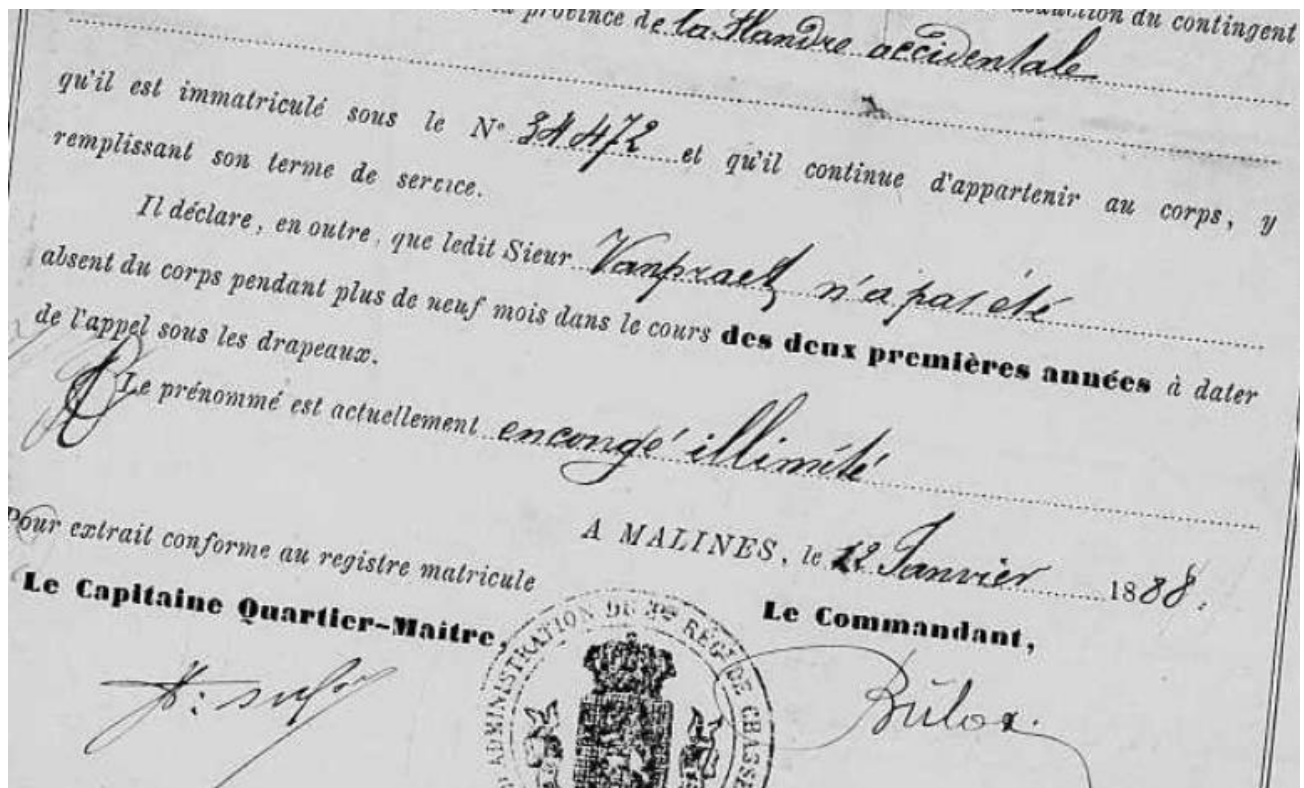 province de la Flandre occidentale
du contingent
qu'il est immatriculé sous le N° 34472 et qu'il continue d'appartenir au corps, y
remplissant son terme de service.
Il déclare, en outre, que ledit Sieur Vanpraet n'a pas été
absent du corps pendant plus de neuf mois dans le cours des deux premières années à dater
de l'appel sous les drapeaux.
Le prénommé est actuellement en congé illimité
A MALINES, le 12 Janvier 1888.
Pour extrait conforme au registre matricule
Le Capitaine Quartier-Maitre,
Le Commandant,
ADMINISTRATION DU 3me REGT DE CHASSE